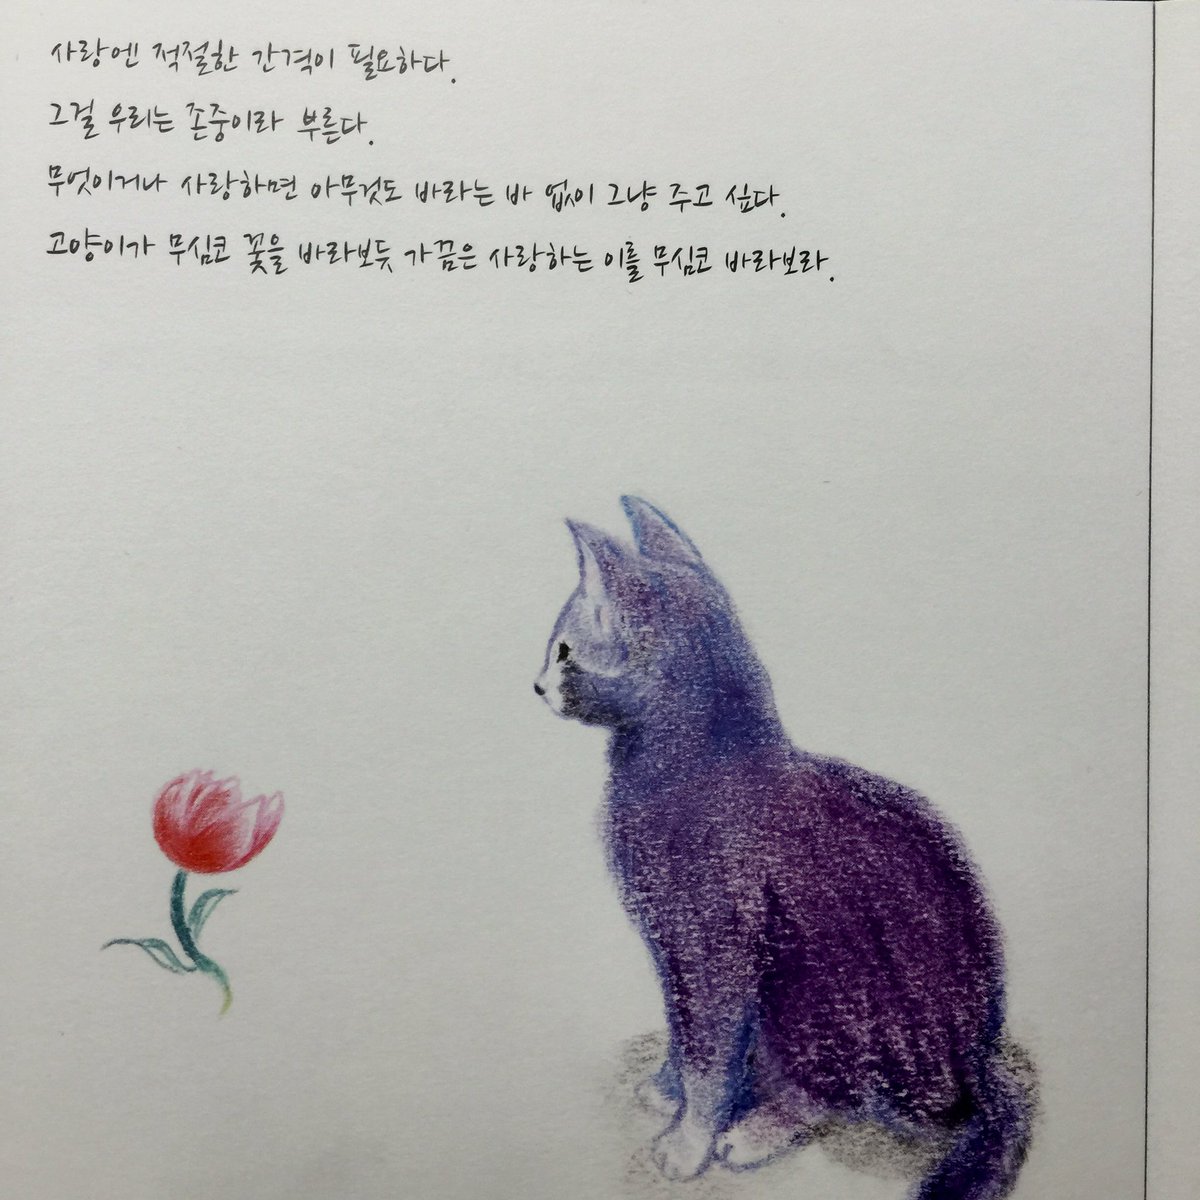 사랑엔 적절한 간격이 필요하다.
그걸 우리는 존중이라 부른다.
무엇이거나 사랑하면 아무것도 바라는 바 없이 그냥 주고 싶다.
고양이가 무심코 꽃을 바라보듯 가끔은 사랑하는 이를 무심코 바라보라.